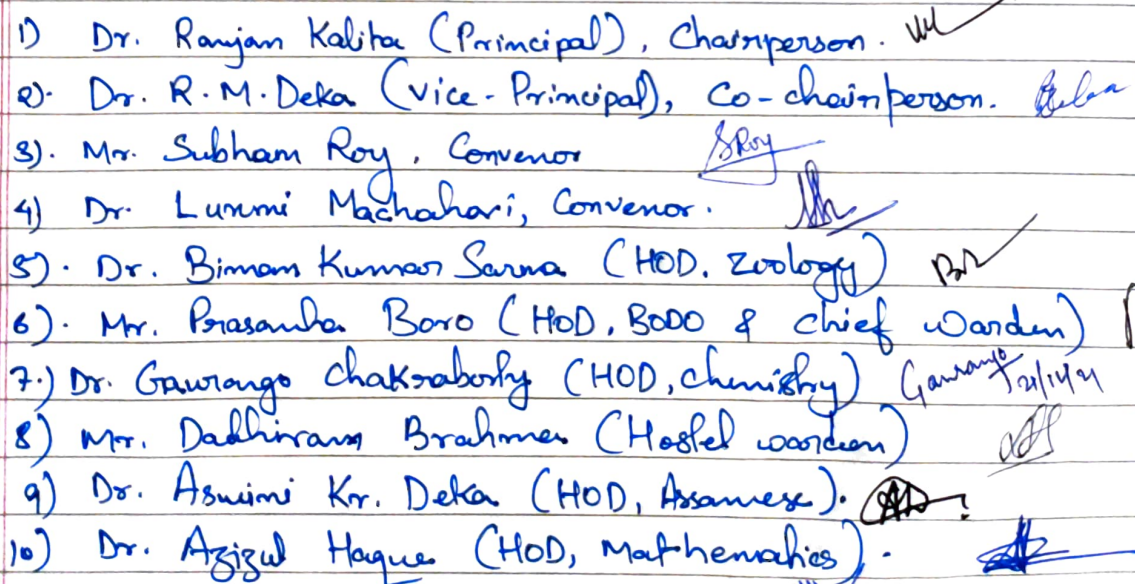 1) Dr. Ranjan Kalita (Principal), Chairperson.
2). Dr. R.M. Deka (Vice-Principal), Co-chairperson.
3). Mr. Subham Roy, Convenor SRoy
4) Dr. Luxmi Machahari, Convenor.
5). Dr. Biman Kumar Sarma (HOD. Zoology)
6). Mr. Prasanta Boro (HOD, BODO & Chief Warden)
7.) Dr. Gaurango Chakraborty (HOD, Chemistry) Gaurango
8) Mr. Dadhiram Brahma (Hostel warden)
9) Dr. Aswini Kr. Deka (HOD, Assamese).
10) Dr. Azizul Haque (HOD, Mathematics).